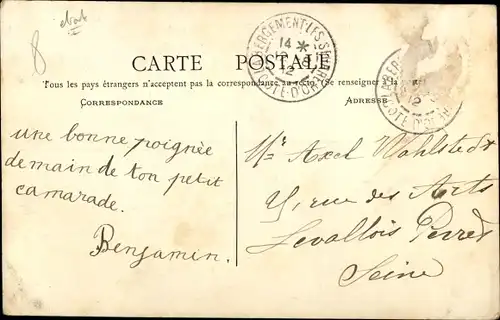 8
CARTE POSTALE
Tous les pays étrangers n'acceptent pas la correspondance au recto (Se renseigner à la poste)
CORRESPONDANCE
ADRESSE
LABERGEMENT-LES-SEURRE
14 *
12
CÔTE-D'OR
CÔTE-D'OR
une bonne poignée
de main de ton petit
camarade.
Benjamin.
Mr Axel Wahlstedt
rue des Arts
Levallois Perret
Seine